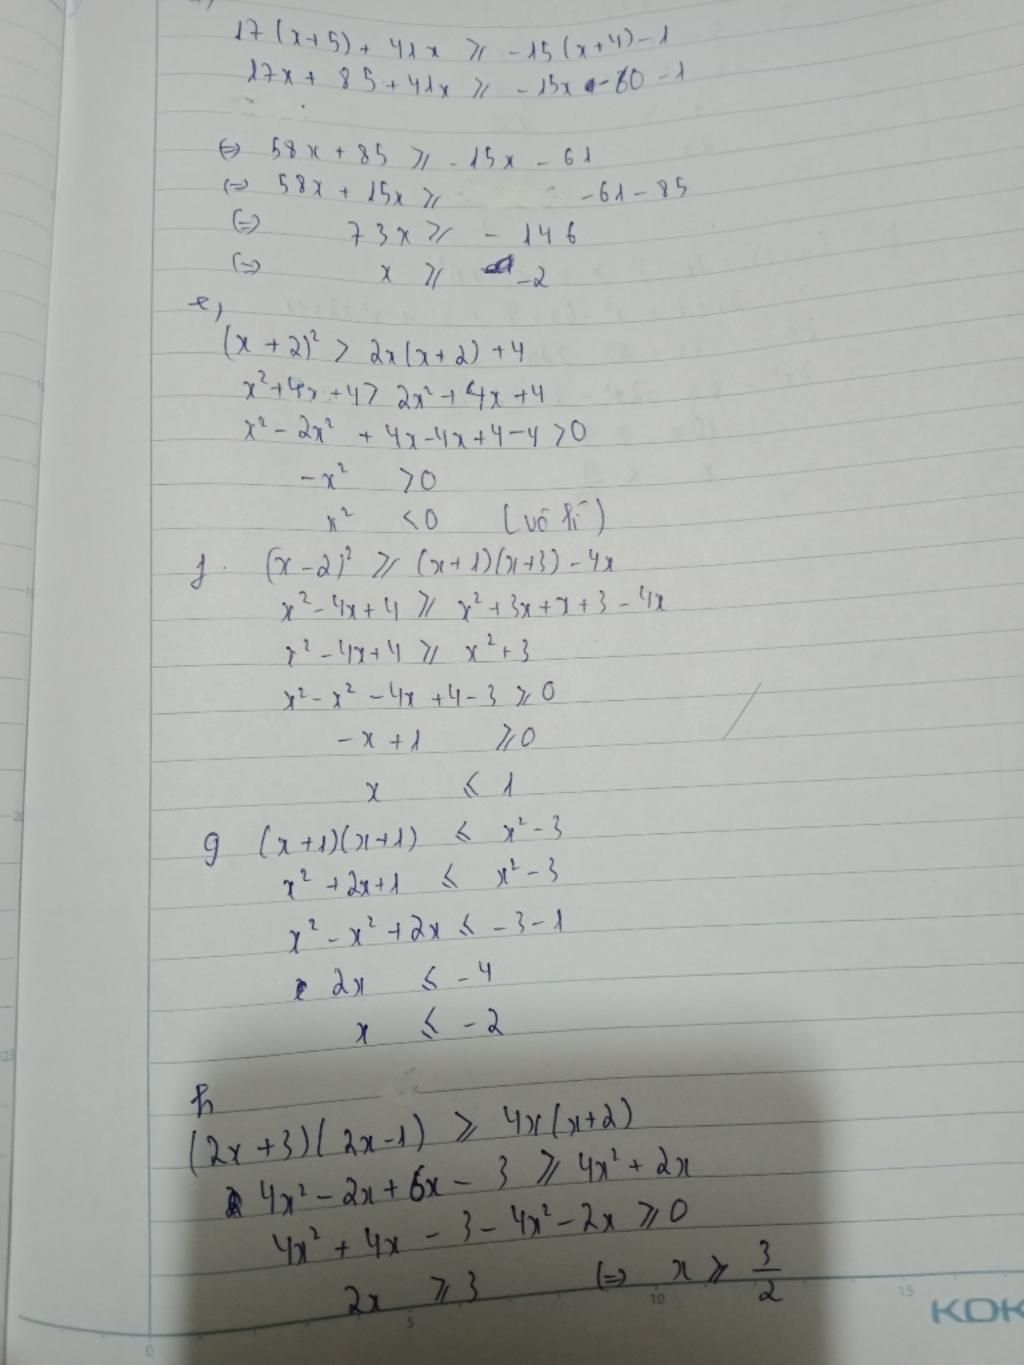 17(x+5) + 41x ⩾ -15(x+4)-1
17x + 85 + 41x ⩾ -15x - 60 - 1
⇔ 58x + 85 ⩾ -15x - 61
⇔ 58x + 15x ⩾ -61-85
⇔ 73x ⩾ - 146
⇔ x ⩾ -2
e,
(x + 2)² > 2x(x+2) + 4
x² + 4x + 4 > 2x² + 4x + 4
x² - 2x² + 4x - 4x + 4 - 4 > 0
-x² > 0
x² < 0 (vô lí)
f. (x-2)² ⩾ (x+1)(x+3) - 4x
x² - 4x + 4 ⩾ x² + 3x + x + 3 - 4x
x² - 4x + 4 ⩾ x² + 3
x² - x² - 4x + 4 - 3 ⩾ 0
-x + 1 ⩾ 0
x ⩽ 1
g (x+1)(x+1) ⩽ x² - 3
x² + 2x + 1 ⩽ x² - 3
x² - x² + 2x ⩽ -3 - 1
2x ⩽ -4
x ⩽ -2
h
(2x+3)(2x-1) ⩾ 4x(x+2)
4x² - 2x + 6x - 3 ⩾ 4x² + 2x
4x² + 4x - 3 - 4x² - 2x ⩾ 0
2x ⩾ 3 ⇔ x ⩾ 3/2
0 5 10 15
KOK